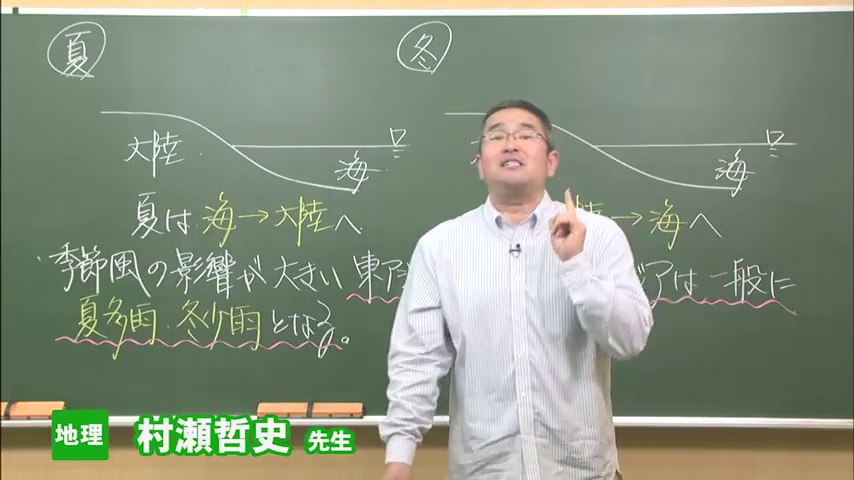 夏
冬
大陸
海
海
夏は 海→大陸へ
→海へ
・季節風の影響が大きい東ア
アは一般に
夏多雨・冬少雨となる。
地理 村瀬哲史 先生